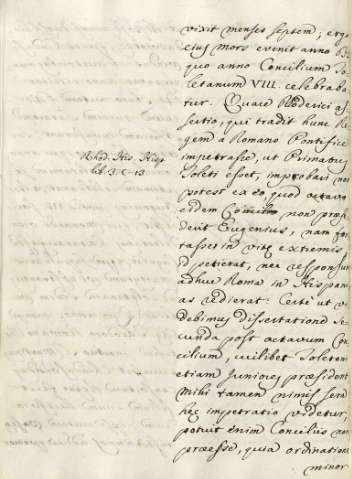 vixit menses septem; ergo
eius mors evenit anno
quo anno Concilium To
letanum VIII. celebraba
tur. Quare Roderici as
sertio, qui tradit hunc Re
gem à Romano Pontifice
impetrasse, ut Primatus
Toleti esset, improbari non
potest ex eo, quod octavo
eidem Concilio non præ
derit Eugenius, nam for
tasse in vitæ extremis
id petierat, nec responsum
adhuc Roma in Hispani
as redierat: Certè ut vi
debimus dissertatione se
cunda post octavum Con
cilium, cuilibet Soleten
etiam Juniores præsident
Mihi tamen nimis sera
hæc impetratio videtur,
potuit enim Concilio non
præesse, quia ordinatione
minor
Rhod. His. Hisp.
lib. 3. C. 13